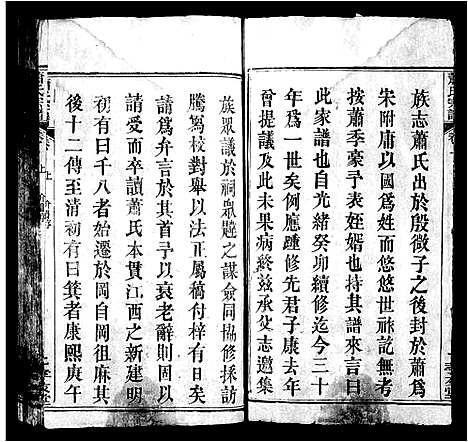 族志蕭氏出於殷微子之後封於蕭爲
宋附庸以國爲姓而悠悠世祿記無考
按蕭季豪予表姪婿也其譜來言曰
此家譜也自光緒癸卯續修迄今三十
年爲一世矣例應踵修先君子康去年
有志於此未果病終兹承父志邀集
族眾議於祠眾韙之謀僉同協修採訪
騰寫校對舉以法正屬稿付梓有日矣
請爲弁言於其首予以衰老辭則固以
請受而卒讀蕭氏本貫江西之新建明
初有曰千八者始遷於岡自岡徂麻其
後十二傳至清初有曰箕者康熙庚午